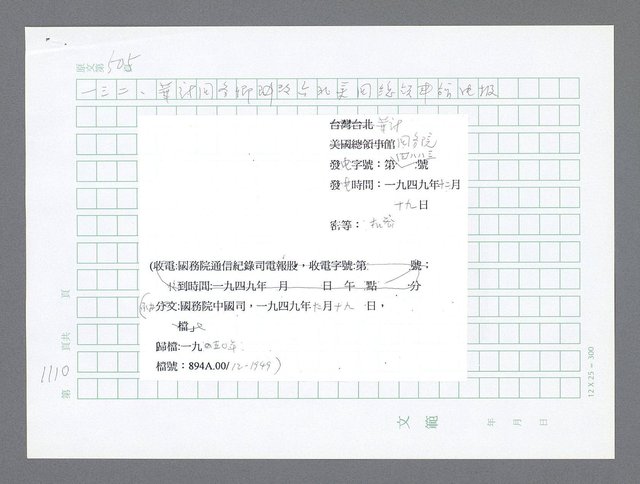 原文第505頁
一三二、華計國務卿致台北美國總領事館電報
台灣台北 華計
美國總領事館 國務院
發電字號：第四八八三號
發電時間：一九四九年十二月
十九日
密等：機密
(收電:國務院通信紀錄司電報股，收電字號:第 號；
到時間:一九四九年 月 日 午 點 分
分文:國務院中國司，一九四九年十二月十九日，
檔
歸檔:一九五〇年
檔號：894A.00/12-1949)
第1110頁共 頁
12 X 25 = 300
文範 年 月 日